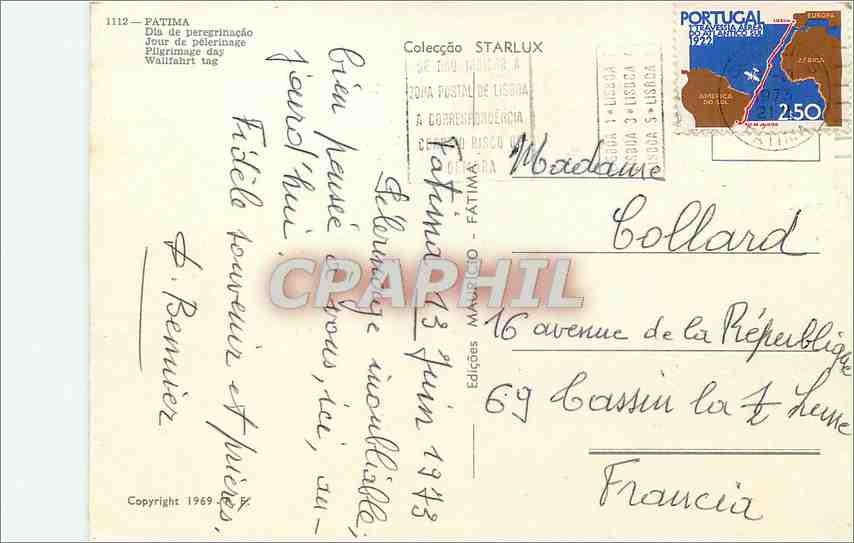 1112 — FATIMA
Dia de peregrinação
Jour de pèlerinage
Pilgrimage day
Wallfahrt tag
Colecção STARLUX
PORTUGAL
1ª TRAVESSIA AÉREA
DO ATLÂNTICO SUL
1922
LISBOA
EUROPA
ÁFRICA
AMÉRICA
DO SUL
RIO DE JANEIRO
2$50
SE NÃO INDICAR A
ZONA POSTAL DE LISBOA
A CORRESPONDÊNCIA
CORRE O RISCO DE
DEMORA
LISBOA 1 • LISBOA
LISBOA 3 • LISBOA
LISBOA 5 • LISBOA
Fatima 13 Juin 1973
Pélerinage inoubliable,
bien pensé à vous, ici, au-
jourd'hui.
Fidèle souvenir et prières.
Bernier
Edições MAURÍCIO - FÁTIMA
Madame
Collard
16 avenue de la République
69 Tassin la 1/2 Lune
Francia
CPAPHIL
Copyright 1969 -